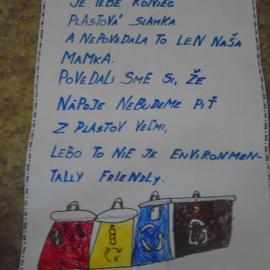 JE TEBE KONIEC
PLASTOVÁ SLAMKA
A NEPOVEDALA TO LEN NAŠA
MAMKA.
POVEDALI SME SI, ŽE
NÁPOJE NEBUDEME PIŤ
Z PLASTOV VEĽMI,
LEBO TO NIE JE ENVIRONMEN-
TALLY FRIENDLY.